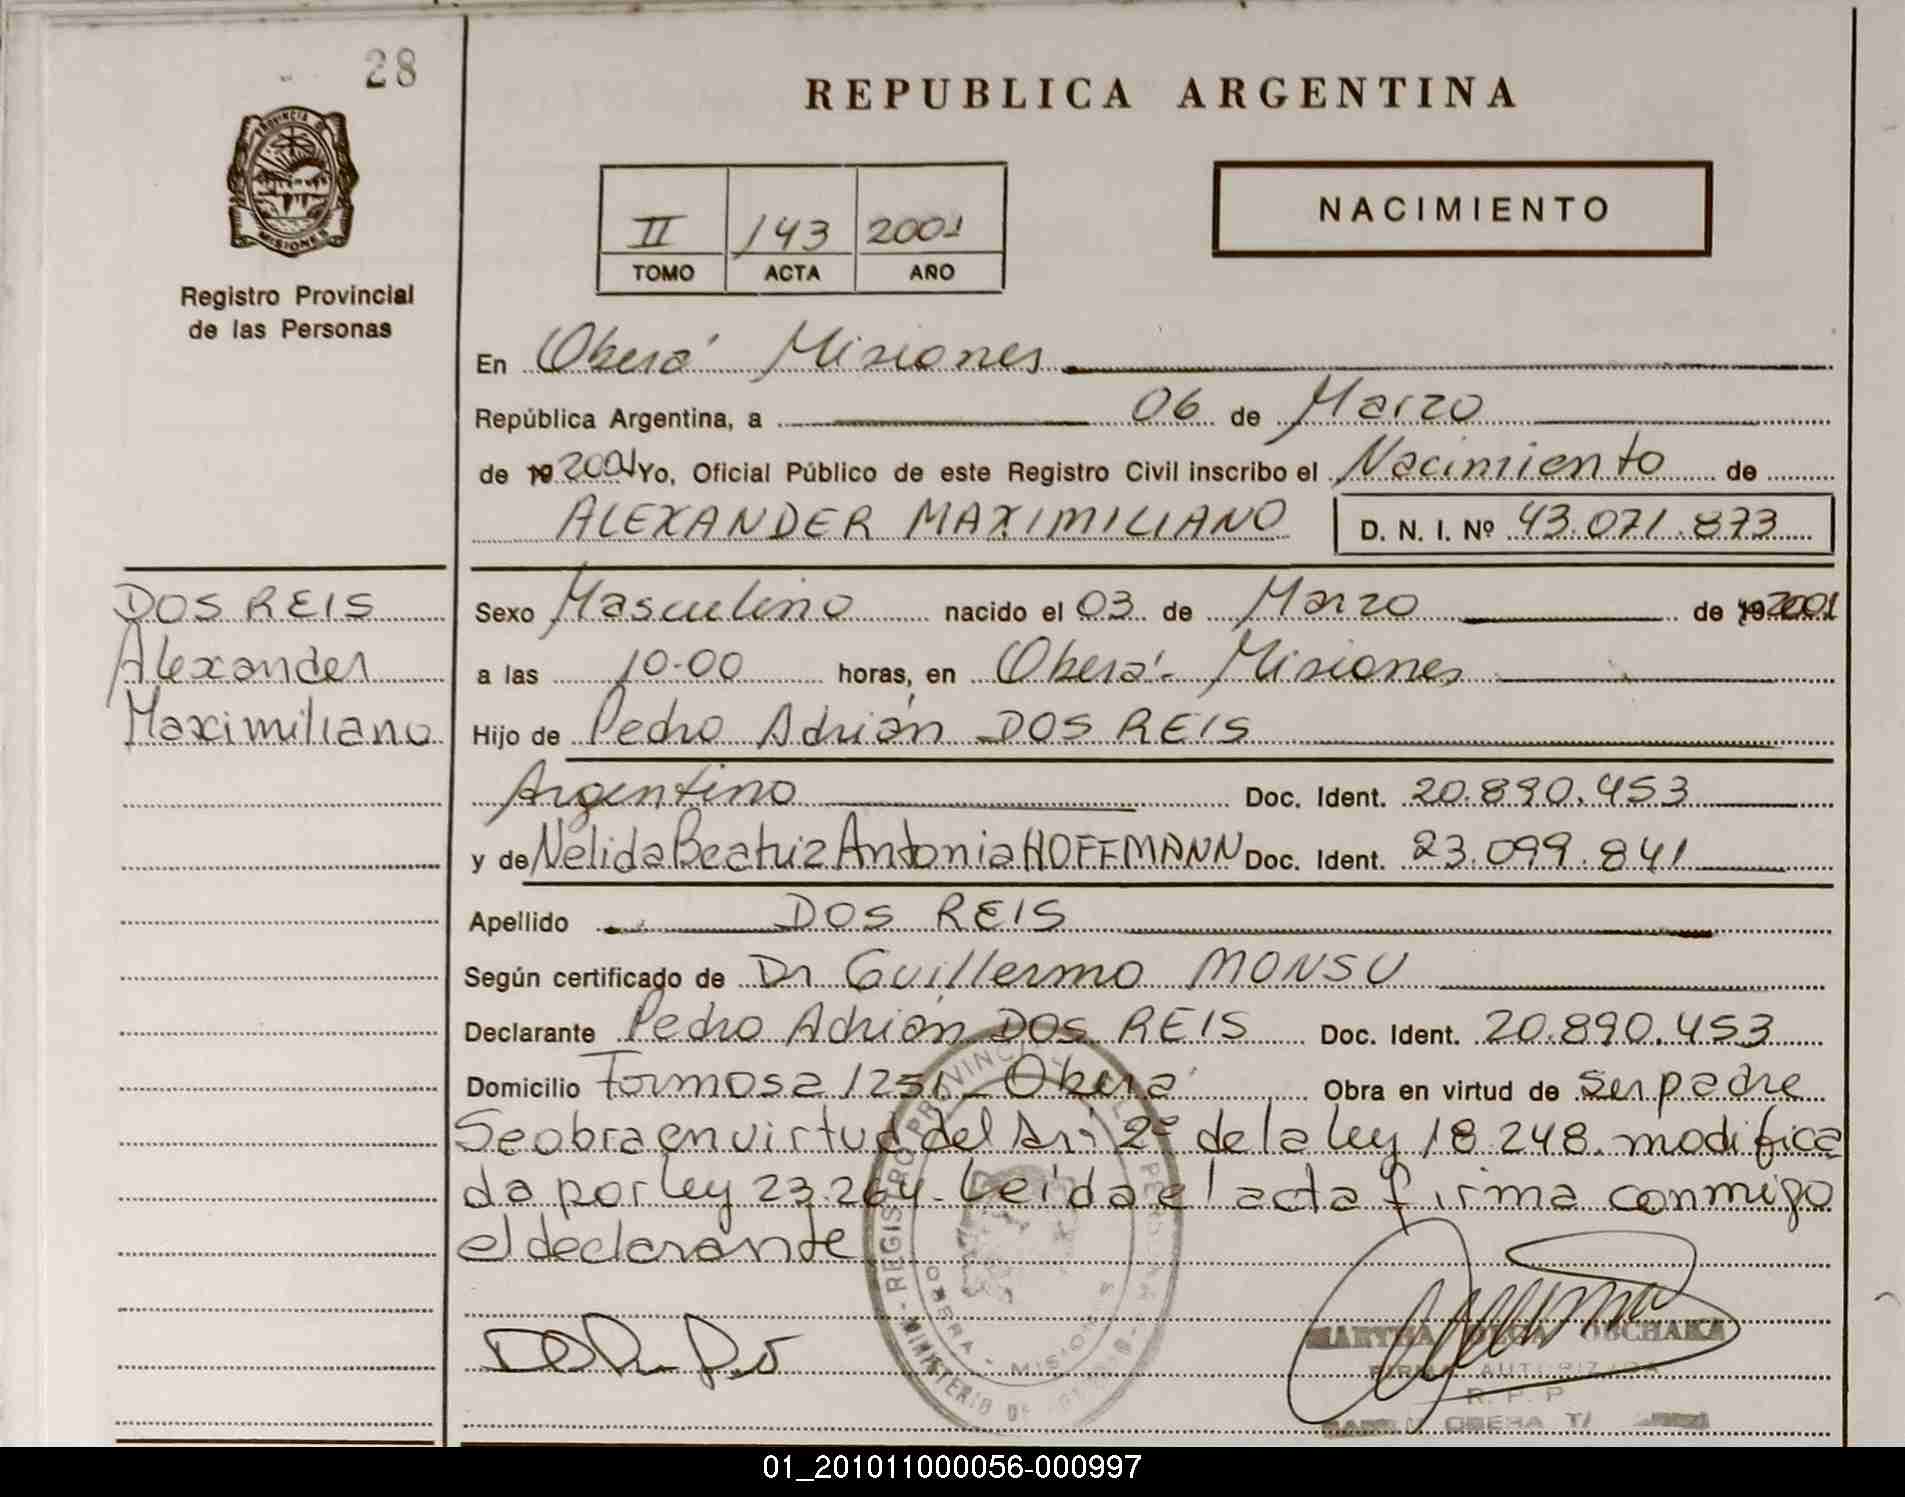 28
REPUBLICA ARGENTINA
PROVINCIA DE
MISIONES
Registro Provincial
de las Personas
II 143 2001
TOMO ACTA AÑO
NACIMIENTO
En Oberá Misiones
República Argentina, a 06 de Marzo
de 19 2001 Yo, Oficial Público de este Registro Civil inscribo el Nacimiento de
ALEXANDER MAXIMILIANO D. N. I. Nº 43.071.873
DOS REIS
Alexander
Maximiliano
Sexo Masculino nacido el 03 de Marzo de 19 2001
a las 10.00 horas, en Oberá - Misiones
Hijo de Pedro Adrián DOS REIS
Argentino Doc. Ident. 20.890.453
y de Nelida Beatriz Antonia HOFFMANN Doc. Ident. 23.099.841
Apellido DOS REIS
Según certificado de Dr Guillermo MONSU
Declarante Pedro Adrián DOS REIS Doc. Ident. 20.890.453
Domicilio Formosa 1251 - Oberá Obra en virtud de ser padre
Se obra en virtud del Art 2º de la ley 18.248. modifica
da por ley 23.264. Leída el acta firma conmigo
el declarante
REGISTRO PROVINCIAL DE LAS PERSONAS
MINISTERIO DE GOBIERNO
OBERA - MISIONES
MARTHA OLGA
FIRMA AUTORIZADA
R. P. P.
OBERA
01_201011000056-000997